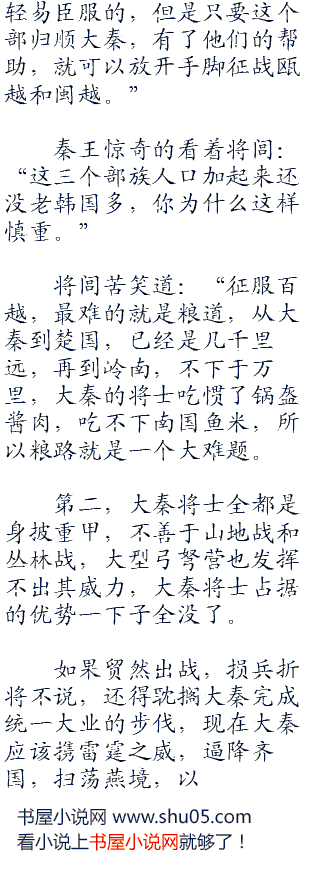 轻易臣服的，但是只要这个
部归顺大秦，有了他们的帮
助，就可以放开手脚征战瓯
越和闽越。”
秦王惊奇的看着将闾：
“这三个部族人口加起来还
没老韩国多，你为什么这样
慎重。”
将闾苦笑道：“征服百
越，最难的就是粮道，从大
秦到楚国，已经是几千里
远，再到岭南，不下于万
里，大秦的将士吃惯了锅盔
酱肉，吃不下南国鱼米，所
以粮路就是一个大难题。
第二，大秦将士全都是
身披重甲，不善于山地战和
丛林战，大型弓弩营也发挥
不出其威力，大秦将士占据
的优势一下子全没了。
如果贸然出战，损兵折
将不说，还得耽搁大秦完成
统一大业的步伐，现在大秦
应该携雷霆之威，逼降齐
国，扫荡燕境，以
书屋小说网 www.shu05.com
看小说上书屋小说网就够了！